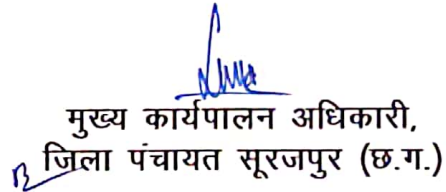 मुख्य कार्यपालन अधिकारी,
जिला पंचायत सूरजपुर (छ.ग.)